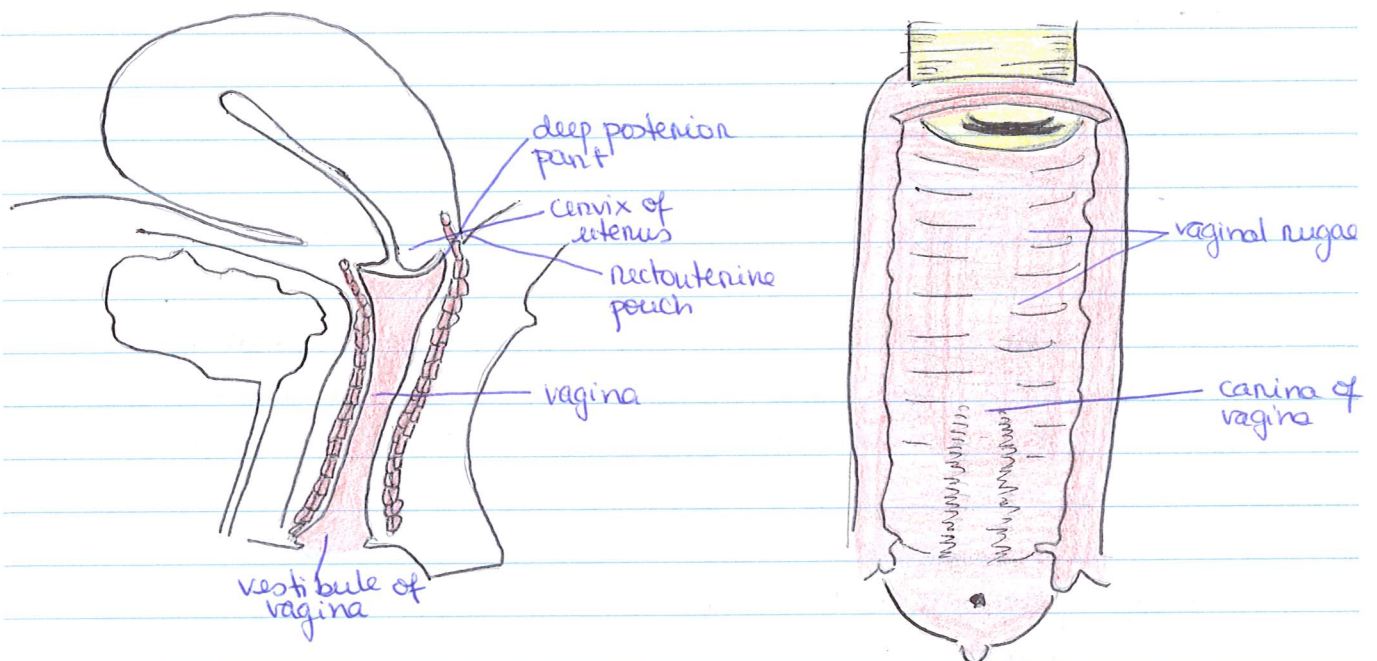 deep posterior
part
cervix of
uterus
rectouterine
pouch
vagina
vestibule of
vagina
vaginal rugae
carina of
vagina